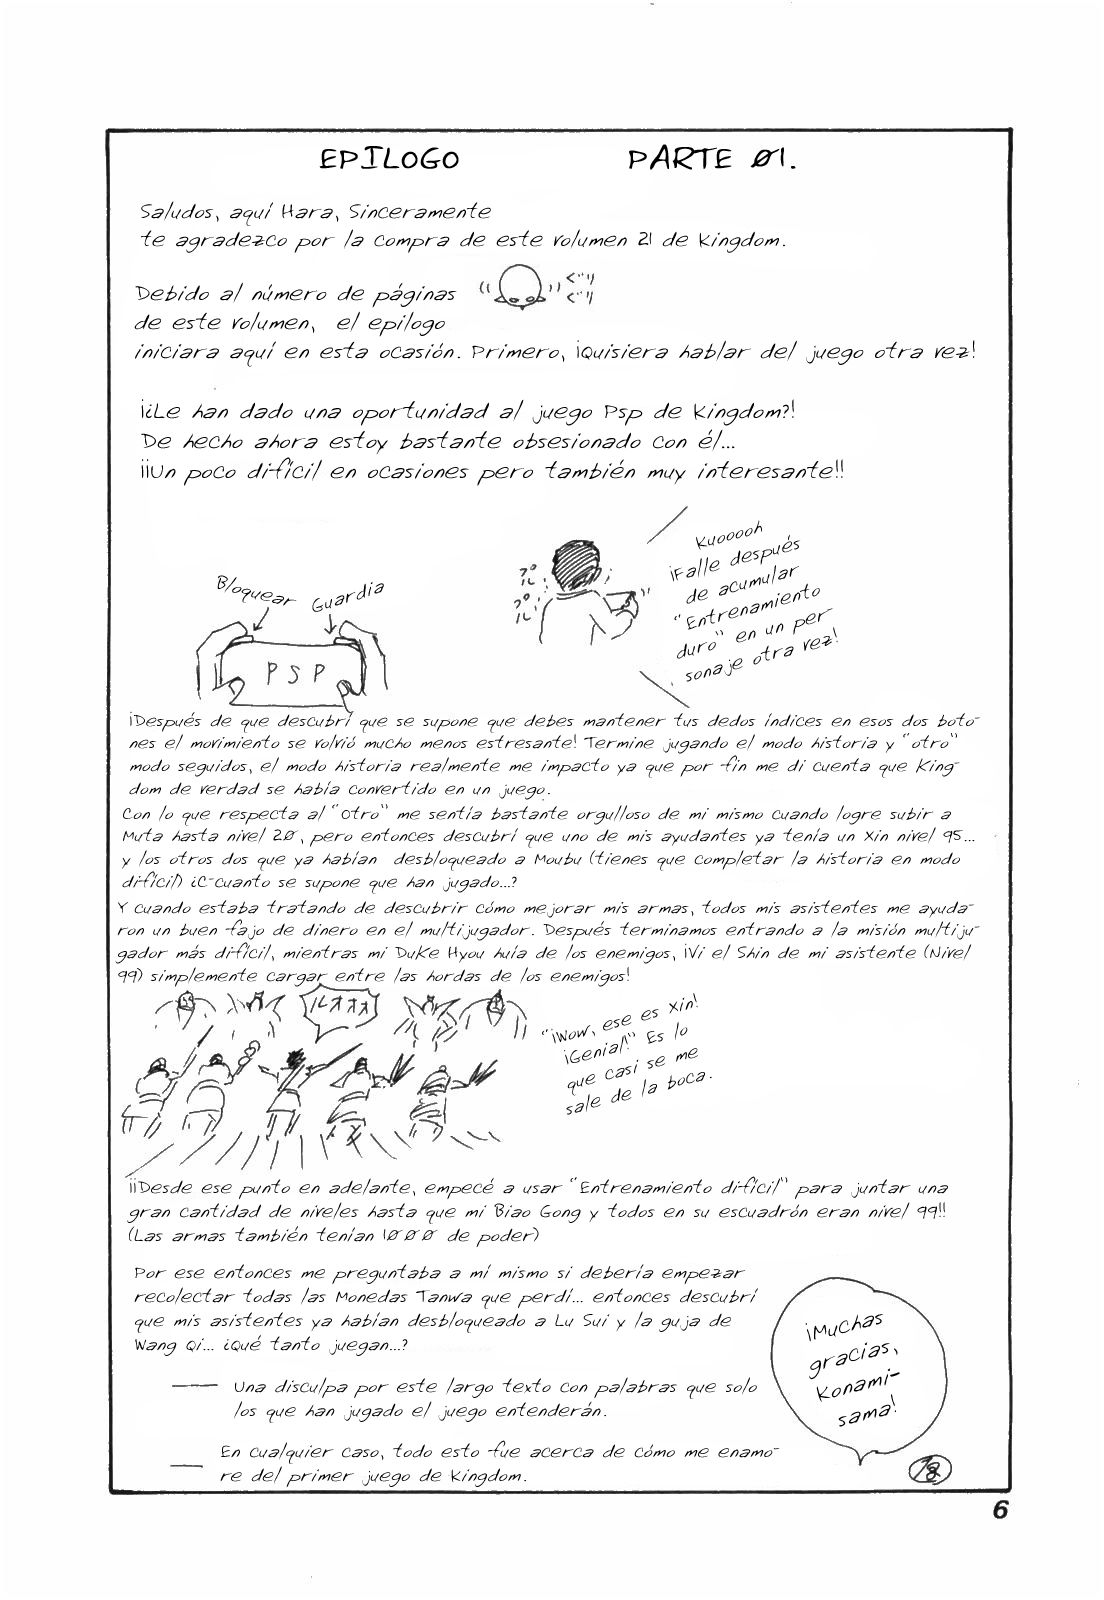 EPILOGO PARTE 01.
Saludos, aquí Hara, Sinceramente
te agradezco por la compra de este volumen 21 de Kingdom.
Debido al número de páginas
de este volumen, el epilogo
iniciara aquí en esta ocasión. Primero, ¡Quisiera hablar del juego otra vez!
ペコリ
ペコリ
¡¿Le han dado una oportunidad al juego Psp de Kingdom?!
De hecho ahora estoy bastante obsesionado con él...
¡¡Un poco difícil en ocasiones pero también muy interesante!!
Bloquear
Guardia
PSP
プル
プル
Kuooooh
¡Falle después
de acumular
"Entrenamiento
duro" en un per
sonaje otra vez!
¡Después de que descubrí que se supone que debes mantener tus dedos índices en esos dos boto-
nes el movimiento se volvió mucho menos estresante! Termine jugando el modo historia y "otro"
modo seguidos, el modo historia realmente me impacto ya que por fin me di cuenta que King-
dom de verdad se había convertido en un juego.
Con lo que respecta al "otro" me sentía bastante orgulloso de mi mismo cuando logre subir a
Muta hasta nivel 20, pero entonces descubrí que uno de mis ayudantes ya tenía un Xin nivel 95...
y los otros dos que ya habían desbloqueado a Moubu (tienes que completar la historia en modo
difícil) ¿C-cuanto se supone que han jugado...?
Y cuando estaba tratando de descubrir cómo mejorar mis armas, todos mis asistentes me ayuda-
ron un buen fajo de dinero en el multijugador. Después terminamos entrando a la misión multiju-
gador más difícil, mientras mi Duke Hyou huía de los enemigos, ¡Vi el Shin de mi asistente (Nivel
99) simplemente cargar entre las hordas de los enemigos!
ルオオオ
"¡Wow, ese es Xin!
¡Genial!" Es lo
que casi se me
sale de la boca.
¡¡Desde ese punto en adelante, empecé a usar "Entrenamiento difícil" para juntar una
gran cantidad de niveles hasta que mi Biao Gong y todos en su escuadrón eran nivel 99!!
(Las armas también tenían 1000 de poder)
Por ese entonces me preguntaba a mí mismo si debería empezar
recolectar todas las Monedas Tanwa que perdí... entonces descubrí
que mis asistentes ya habían desbloqueado a Lu Sui y la guja de
Wang Qi... ¿Qué tanto juegan...?
Una disculpa por este largo texto con palabras que solo
los que han jugado el juego entenderán.
En cualquier caso, todo esto fue acerca de cómo me enamo-
re del primer juego de Kingdom.
¡Muchas
gracias,
Konami-
sama!
6